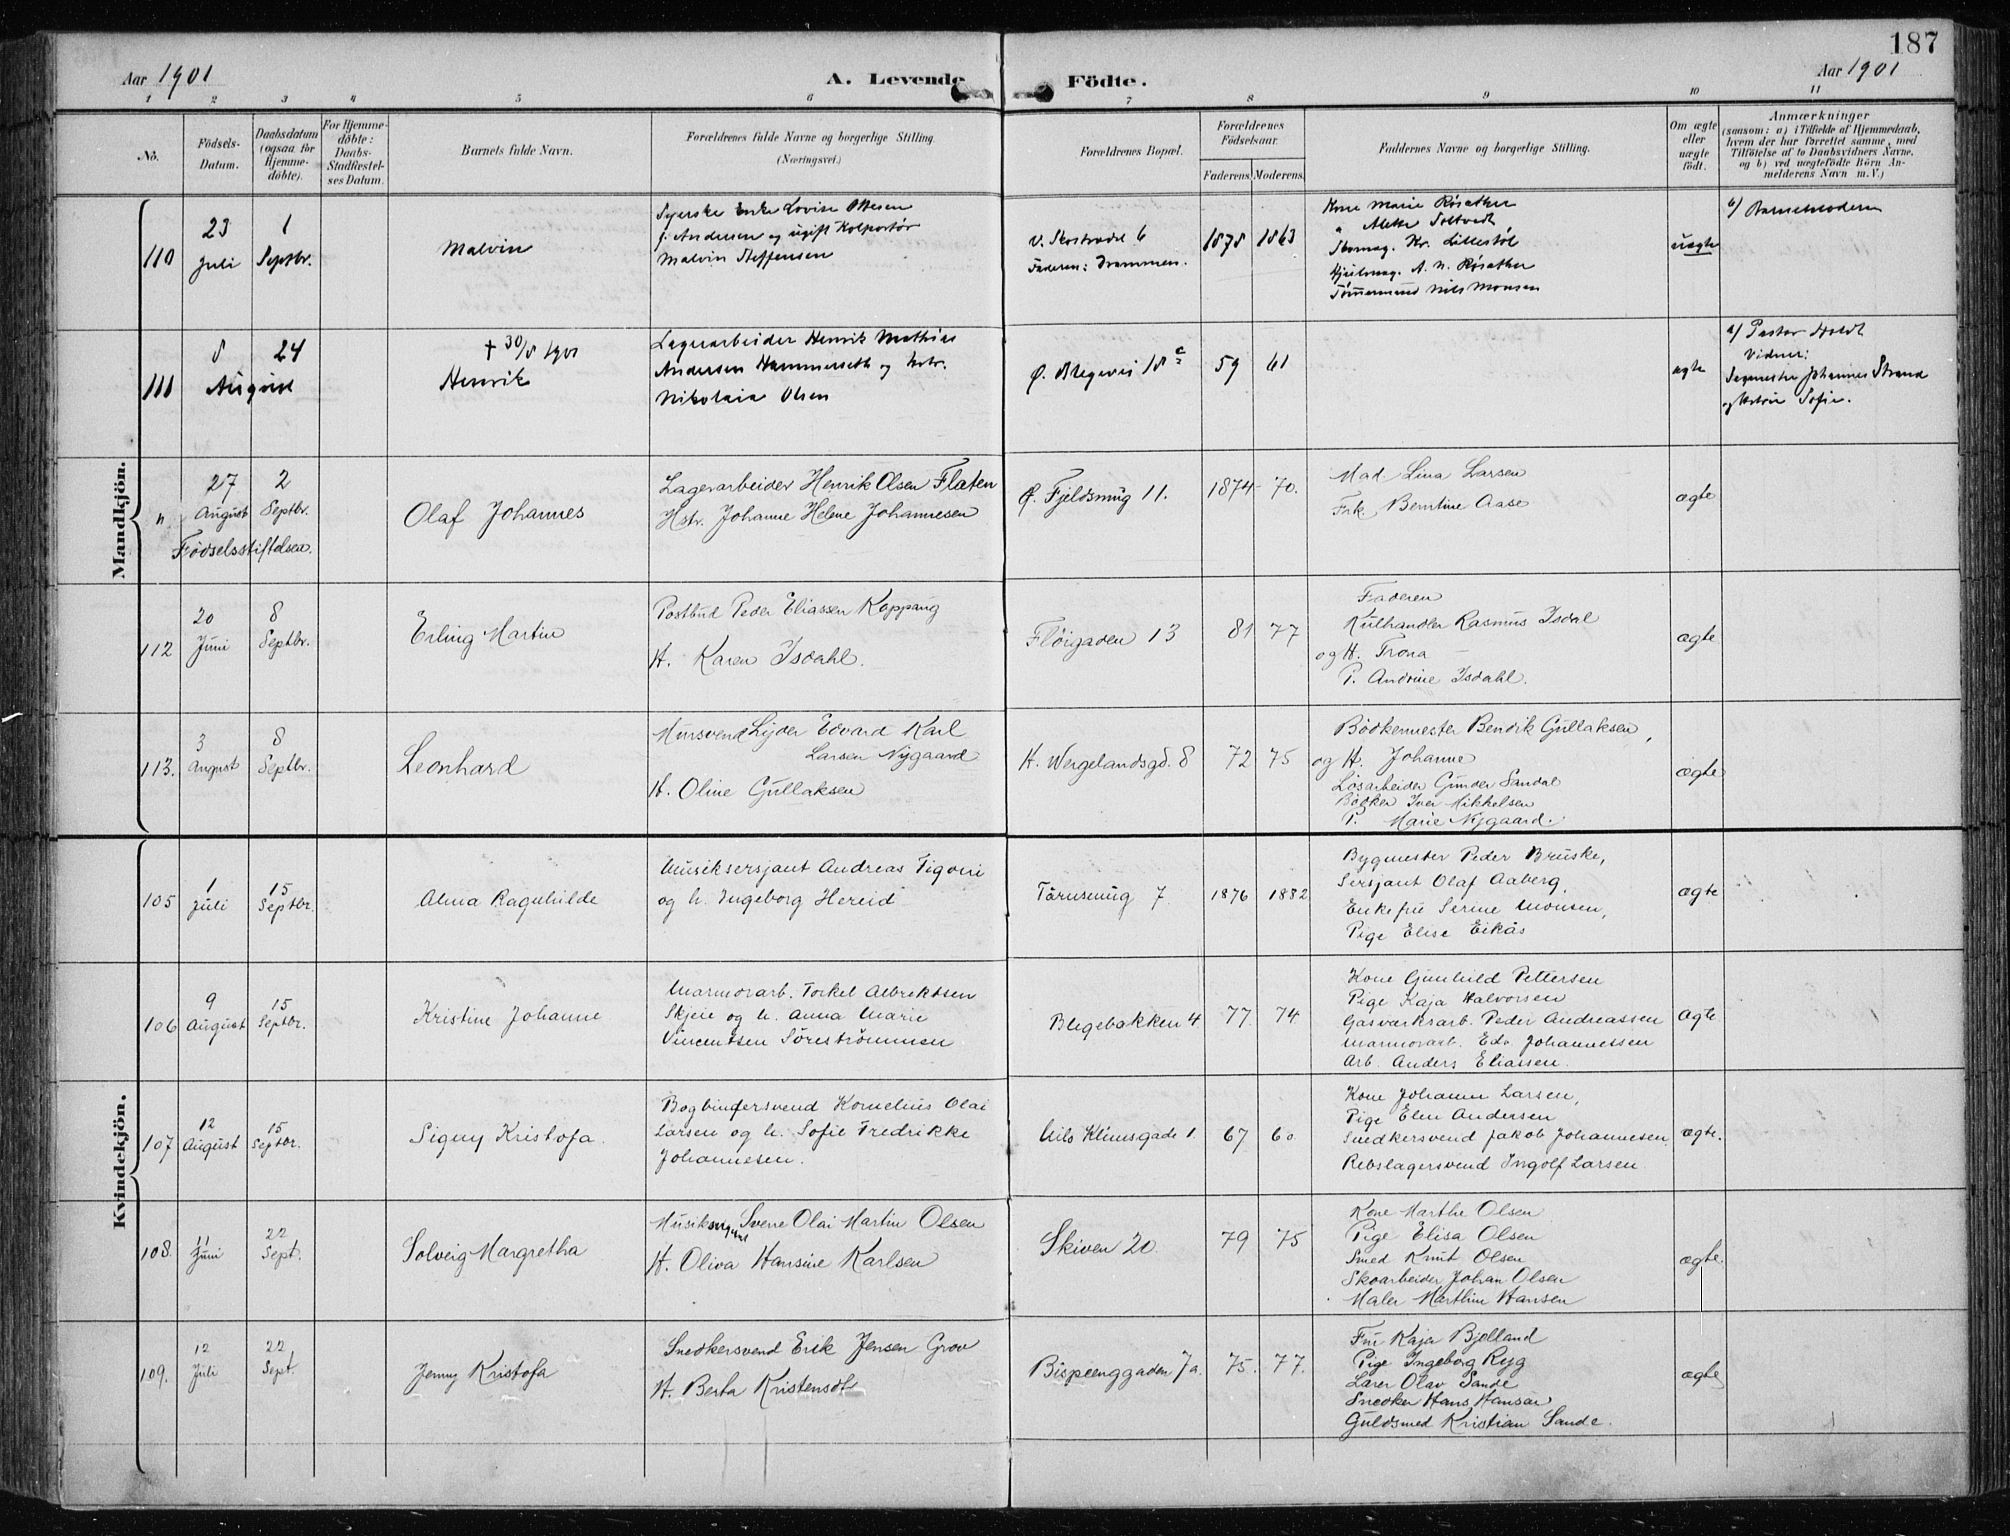 187
Aar 1901
A. Levende
Födte.
Aar 1901
1 2 3 4 5 6 7 8 9 10 11
No.
Födsels-
Datum.
Daabsdatum
(ogsaa for
Hjemme-
döbte).
For Hjemme-
döbte:
Daabs-
Stadfestel-
ses Datum.
Barnets fulde Navn.
Forældrenes fulde Navne og borgerlige Stilling.
(Næringsvei.)
Forældrenes Bopæl.
Forældrenes
Födselsaar.
Faderens. Moderens.
Faddernes Navne og borgerlige Stilling.
Om ægte
eller
uægte
födt.
Anmærkninger
(saasom: a) i Tilfælde af Hjemmedaab,
hvem der har forrettet samme, med
Tilföielse af to Daabsvidners Navne,
og b) ved uægtefödte Börn An-
melderens Navn m. V.)
Mandkjön.
110
23
Juli
1
Septbr.
Malvin
Syerske Enke Lovise Olsen
f. Andersen og ugift Kolportör
Malvin Steffensen
V. Skostrædet 6
Faderen: Drammen.
1878 1863
Kone Marie Röisether
" Alette Soltvedt
Skomag. Kr. Lillestöl
Hjulmag. A. N. Röisether
Tömmermand Nils Monsen
uægte
b) Barnemoderen
111
8
24
August
+ 30/8 1901
Henrik
Lagerarbeider Henrik Mathias
Andersen Hammerseth og Hstr.
Nikolaia Olsen
Ö. Blegevei 18 c
59 61
ægte
a/ Pastor Holdt
Vidner:
Johannes Strand
og Hstru Sofie.
"
27
August
2
Septbr.
Födselsstiftelsen.
Olaf Johannes
Lagerarbeider Henrik Olsen Flaten
Hstr. Johanne Helene Johannesen
Ø. Fjeldsmug 11.
1874 - 70.
Mad. Lina Larsen
Frk. Berntine Aase
ægte
112
20
Juni
8
Septbr.
Erling Martin
Postbud Peder Eliassen Koppang
H. Karen Isdahl.
Flöigaden 13
81 77
Faderen
Kulhandler Rasmus Isdal
og H. Trona —
P. Andrine Isdahl.
ægte
113.
3
August
8
Septbr.
Leonhard
Mursvend Lyder Edvard Karl
Larsen Nygaard
H. Oline Gullaksen
H. Wergelandsgd. 8
72 75
Bödkermester Bendik Gullaksen,
og H. Johanne
Lösarbeider Gunder Sandal
Bödker Iver Mikkelsen
P. Marie Nygaard.
ægte
Kvindekjön.
105
1
Juli
15
Septbr.
Alma Ragnhilde
Musiksersjant Andreas Figved
og h. Ingeborg Hereid
Taarnsmug 7
1876 1882
Bygmester Peder Bruske,
Sersjant Olaf Aaberg,
Enkefru Serine Monsen,
Pige Elise Eikås
ægte
106
9
August
15
Septbr.
Kristine Johanne
Marmorarb. Torkel Albrektsen
Skjeie og h. Anna Marie
Vincentsen Söreströmmen
Blegebakken 4
77 74
Kone Gunhild Pettersen
Pige Kaja Halvorsen
Gasværksarb. Peder Andreassen
Marmorarb. Edv. Johannessen
Arb. Anders Eliassen.
Ægte
107
12
August
15
Septbr.
Signy Kristofa.
Bogbindersvend Kornelius Olai
Larsen og h. Sofie Fredrikke
Johannesen.
Nils Klimsgade 1.
67 60
Kone Johanne Larsen,
Pige Elen Andersen
Snedkersvend Jakob Johannesen.
Rebslagersvend Ingolf Larsen
ægte.
108.
11
Juni
22
Sept.
Solveig Margretha
Musiksersjant Svene Olai Martin Olsen
H. Oliva Hansine Karlsen
Skiven 20.
79 75
Kone Marthe Olsen
Pige Elisa Olsen
Smed Knut Olsen
Skoarbeider Johan Olsen
Maler Marthin Hansen
ægte.
109.
12
Juli
22
Sept.
Jenny Kristofa
Snedkersvend Erik Jensen Grov
H. Berta Kristensdt.
Bispeenggaden 7a.
75. 77.
Fru Kaja Bjelland
Pige Ingeborg Ryg
Lærer Olav Sande
Snedker Hans Hansen
Guldsmed Kristian Sande.
ægte